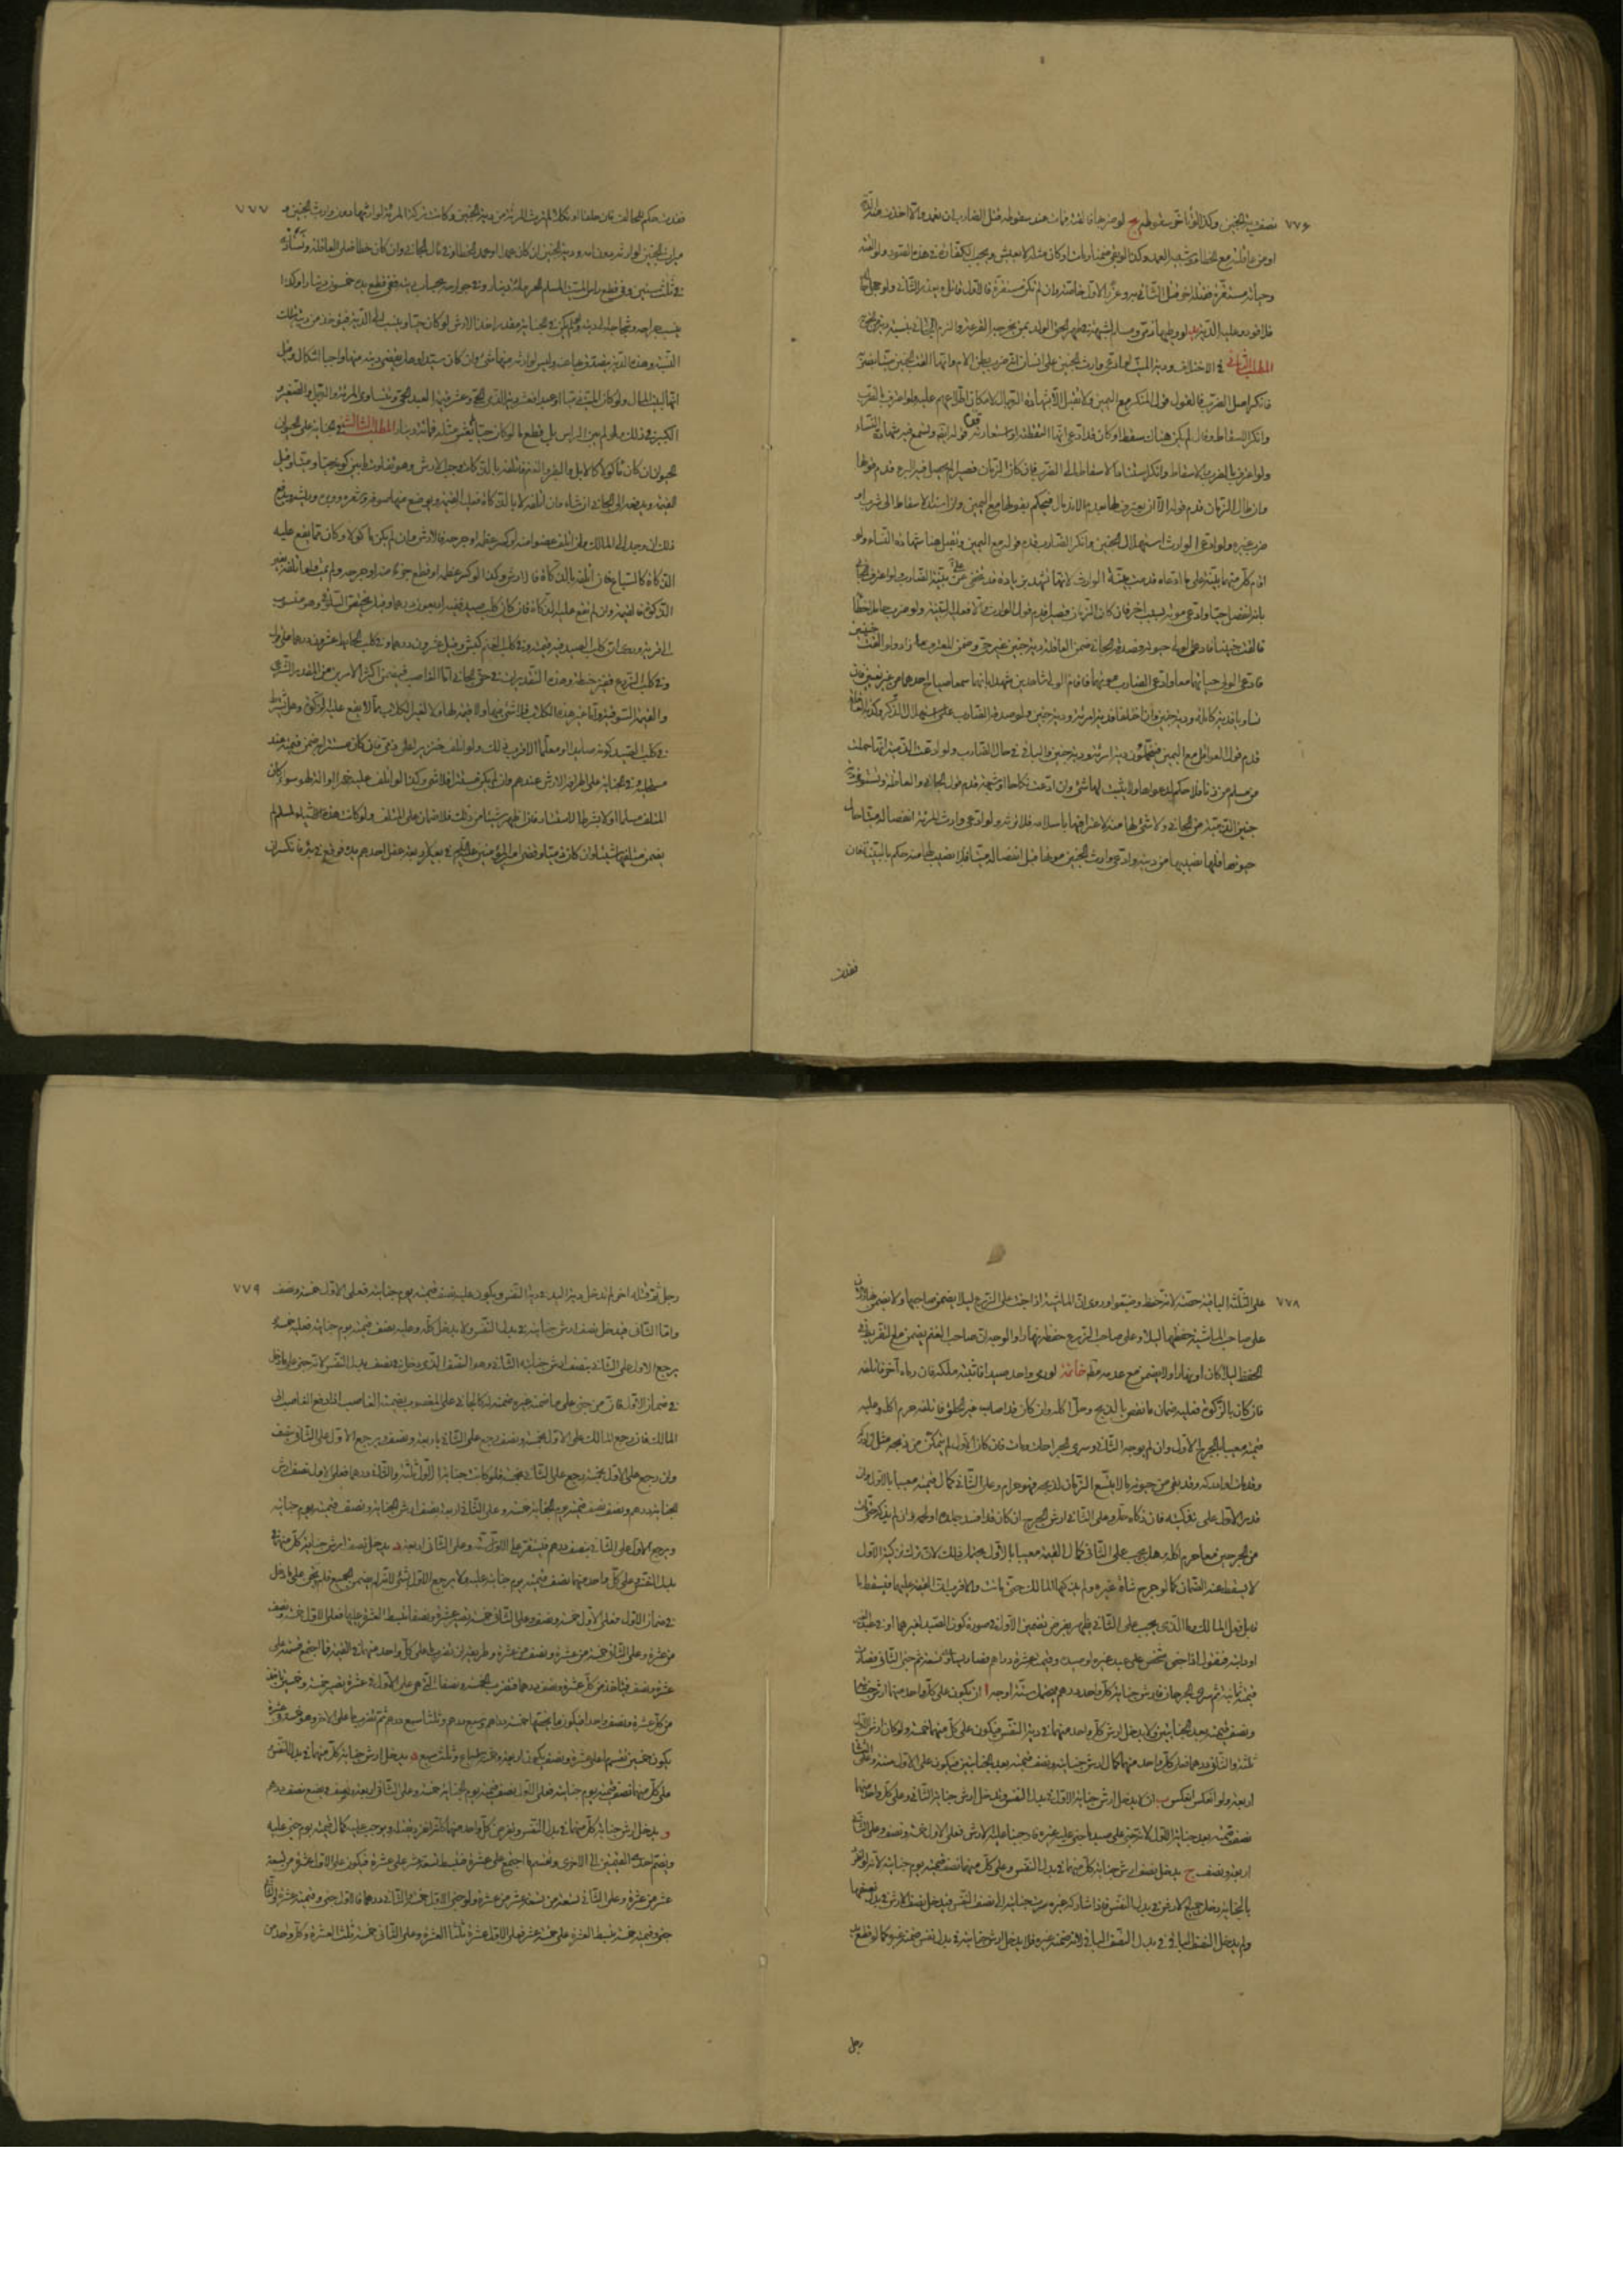 ٧٧۶
نصف دية الجنين وكذا لو تأخر سقوطه ج لو ضربها فالقته فمات عند سقوطه قتل الضارب ان تعمد والا اخذت منه الدية
او من عاقلته مع الخطا وشبيه العمد وكذا لو بقي ضمنا ومات او كان مثله لا يعيش ويجب الكفارة في هذه الصور ولو القته
وحياته مستقرة فقتله اخر قتل الثاني به وعزر الاول خاصة وان لم تكن مستقرة فالاول قاتل ويعزر الثاني ولو جهل حاله
فلا قود وعليه الدية د لو وطيها ذمي ومسلم لشبهة في طهر الحق الولد بمن تخرجه القرعة والزم الجاني بنسبة دية من الحق
المطلب الثاني في الاختلاف ودية الميت لو ادعى وارث الجنين على انسان انه ضرب بطن الام وانها القت الجنين ميتا بضربه
فانكر اصل الضرب فالقول قول المنكر مع اليمين ولا تقبل الا شهادة الرجال لامكان اطلاعهم عليه ولو اعترف بالضرب
وانكر الاسقاط وقال لم يكن هناك سقط او كان فادعى انها التقطته او استعارته فقوله
ولو اعترف بالضرب والاسقاط وانكر استناد الاسقاط الى الضرب فان كان الزمان قصيرا قدم قولها
وان طال الزمان قدم قوله الا ان يعترف لها بعدم الاندمال فيحكم بقولها مع اليمين ولو اسند الاسقاط الى شرب او
ضرب غيره ولو ادعى الوارث استهلال الجنين وانكر الضارب قدم قوله مع اليمين وتقبل هنا شهادة النساء ولو
اقام كل منهما بينة على ما ادعاه قدمت بينة الوارث لانها تشهد بزيادة قد تخفى عن بينة الضارب ولو اعترف الجاني
بانه انفصل حيا وادعى موته بسبب اخر فان كان الزمان قصيرا قدم قول الوارث والا فعليه البينة ولو ضرب حاملا خطا
فالقت جنينا فادعى الولي حيوته وصدقه الجاني ضمن العاقلة دية جنين غير حي وضمن المعترف ما زاد ولو القت جنينين
فادعى الولي حياتهما معا وادعى الضارب موتهما فاقام الولي شاهدين شهدا بانهما سمعا صياح احدهما من غير تعيين فان
تساويا فدية كاملة ودية جنين وان اختلفا فدية امرئة ودية جنين ولو صدقه الضارب على استهلال الذكر وكذبه العاقلة
قدم قول العواقل مع اليمين فيتحملون دية امرئة ودية جنين والباقي في مال الضارب ولو ادعت الذمية انها حملت
من مسلم من زنا فلا حكم لدعواها ولا يثبت لها شئ وان ادعت نكاحا او شبهة قدم قول الجاني والعاقلة
جنين الذمية من الجاني ولا شئ لها منه لاعترافها باسلامه فلا ترثه ولو ادعى وارث المرئة انفصاله ميتا حال
حيوتها فلها نصيبها من ديته وادعى وارث الجنين موتها قبل انفصاله ميتا فلا نصيب لها منه حكم بالبينة فان
فقدت
٧٧٧
فقدت حكم للحالف فان حلفا او نكلا لم ترث المرئة من دية الجنين وكانت تركة المرئة لوارثها دون وارث الجنين و
ميراث الجنين لوارثه دون امه ودية الجنين ان كان عمدا او عمد الخطا في مال الجاني وان كان خطا فعلى العاقلة وتستادى
في ثلث سنين وفي قطع راس الميت المسلم الحر مائة دينار وفي جوارحه بحساب ديته ففي قطع يده خمسون دينارا وكذا
ينسب جراحه وشجاجه الى ديته ولو لم يكن في الجناية مقدر اخذنا الارش لو كان حيا وينسب الى الدية فيؤخذ من ديته تلك
النسبة وهذه الدية يتصدق بها عنه وليس لوارثه منها شئ وان كان مستدينا وهل يقضى دينه منها واجبا اشكال وقيل
انها لبيت المال ولو كان الميت ذميا او عبدا فعشر دية الذمي الحي وعشر قيمة العبد الحي وتتساوى المرئة والرجل والصغير و
الكبير في ذلك ولو لم يبن الراس بل قطع ما لو كان حيا لم يعش مثله فمائة دينار المطلب الثالث في الجناية على الحيوان
الحيوان ان كان ماكولا كالابل والبقر والغنم فاتلفه بالذكاة وجب الارش وهو تفاوت ما بين كونه حيا وميتا وقيل
القيمة ويدفعه الى الجاني ان شاء وان اتلفه لا بالذكاة فعليه القيمة ويوضع منها صوفه وشعره ووبره وريشه ويدفع
ذلك ان وجد الى المالك ولو اتلف عضوا منه او كسر عظما او جرحه فالارش وان لم يكن ماكولا وكان مما يقع عليه
الذكاة كالسباع فان اتلفه بالذكاة فالارش وكذا لو كسر عظمه او قطع جزءا منه او جرحه ولم يمت ولو اتلفه بغير
الذكوة فالقيمة وان لم تقع عليه الذكاة فان كان كلب صيد ففيه اربعون درهما وقيل يختص السلوقي وهو منسوب
الى قرية وروى ان كلب الصيد فيه قيمته وفي كلب الغنم كبش وقيل عشرون درهما وفي كلب الحايط عشرون درهما على قول
وفي كلب الزرع قفيز حنطة وهذه التقديرات في حق الجاني اما الغاصب فيضمن اكثر الامرين من المقدر الشرعي
والقيمة السوقية واما غير هذه الكلاب فلا شئ فيها ولا قيمة لها ولا لغير الكلاب مما لا يقع عليه الذكوة وهل يشترط
في كلب الصيد كونه صائدا او معلما الاقرب ذلك ولو اتلف خنزيرا على ذمي فان كان مستترا به ضمن قيمته عند
مستحليه وفي الجناية على اطرافه الارش عندهم وان لم يكن مستترا فلا شئ وكذا لو اتلف عليه خمرا او الة لهو سواء كان
المتلف مسلما او كافرا بشرط الاستتار فان اظهر شيئا من ذلك فلا ضمان على المتلف ولو كانت هذه الاشياء لمسلم لم
يضمن متلفها شيئا وان كان ذميا وقضى امير المؤمنين عليه السلم في بعير لاربعة عقل احدهم يده فوقع في بئر فانكسر ان
٧٧٨
على الثلثة الباقية حصته لانه حفظ وضيعوا وروى ان الماشية اذا جنت على الزرع ليلا يضمن صاحبها ولا يضمن نهارا لان
على صاحب الماشية حفظها ليلا وعلى صاحب الزرع حفظه نهارا والوجه ان صاحب الغنم يضمن مع التفريط في
الحفظ ليلا كان او نهارا ولا يضمن مع عدمه مطلقا خاتمة لو رمى واحد صيدا فاثبته ملكه فان رماه آخر فاتلفه
فان كان بالذكوة فعليه ضمان ما نقص بالذبح وحل اكله وان كان قد اصاب غير الحلق فاتلفه حرم اكله وعليه
قيمته معيبا بالجرح الاول وان لم يوجه الثاني وسرى الجراحتان ومات فان كان الاول لم يتمكن من ذبحه مثل ان ادركه
وقد مات او ادركه وقد بقي من حيوته ما لا يتسع الزمان لذبحه فهو حرام وعلى الثاني كمال قيمته معيبا بالاول وان
قدر الاول على تذكيته فان ذكاه حل وعلى الثاني ارش الجرح ان كان قد افسد جلدا او لحما وان لم يذكه حتى مات
من الجرحين معا حرم اكله وهل يجب على الثاني كمال القيمة معيبا بالاول يحتمل ذلك لان ترك تذكية الاول
لا يسقط عنه الضمان كما لو جرح شاة غيره ولم يذكها المالك حتى ماتت والاقرب ان القيمة عليهما فيسقط ما
قابل فعل المالك وما الذي يجب على الثاني يظهر بفرض يضمن الاول في صورة كون الصيد لغيرهما او في عبد
او دابة فنقول اذا جنى شخص على عبد غيره او صيده وقيمته عشرة دراهم فصار يساوي تسعة ثم جنى الثاني فصارت
قيمته ثمانية ثم سرى الجرحان فارش جناية كل واحد درهم فيحتمل ستة اوجه ا ان يكون على كل واحد منهما ارش جنايته
ونصف قيمته بعد الجنايتين ولا يدخل ارش كل واحد منهما في دية النفس فيكون على كل منهما خمسة ولو كان ارش الاول
ثلثة والثاني درهما فصار كل واحد منهما كمال ارش جنايته ونصف قيمته بعد الجنايتين فيكون على الاول ستة وعلى الثاني
اربعة ولو انعكس انعكس ب ان لا يدخل ارش جناية الاول في بدل النفس ويدخل ارش جناية الثاني وعلى كل واحد منهما
نصف قيمته بعد جناية الاول لانه جنى على صيد ما جنى عليه غيره فعلى الاول خمسة ونصف وعلى الثاني
اربعة ونصف ج يدخل نصف ارش جناية كل منهما في بدل النفس وعلى كل منهما نصف قيمته يوم جنايته لانه لو انفرد
بالجناية دخل جميع الارش في بدل النفس فاذا شاركه غيره سرت جنايته الى نصف النفس فيدخل نصف الارش في بدل نصفها
ولم يدخل النصف الباقي في بدل النصف الباقي لانه ضمنه غيره فلا يدخل ارش جنايته في بدل نفس ضمنه غيره كما لو قطع يد
رجل
٧٧٩
رجل ثم قتله اخر لم تدخل دية اليد في دية النفس ويكون عليه نصف قيمته يوم جنايته فعلى الاول خمسة ونصف
واما الثاني فيدخل نصف ارش جنايته في بدل النفس ولا يدخل كله وعليه نصف قيمته يوم جنايته فعليه خمسة
يرجع الاول على الثاني بنصف ارش جناية الثاني وهو النصف الذي دخل في نصف بدل النفس لانه جنى على ما دخل
في ضمان الاول فان من جنى على ما ضمنه غيره ضمنه له كالجاني على المغصوب يضمنه الغاصب اذا دفع الغاصب الى
المالك فان رجع المالك على الاول بخمسة ونصف رجع على الثاني باربعة ونصف ويرجع الاول على الثاني بنصف
وان رجع على الاول بخمسة رجع على الثاني بخمسة فلو كانت جناية الاول ثلثة والثاني درهما فعلى الاول نصف ارش
الجناية درهم ونصف ونصف قيمته يوم الجناية خمسة وعلى الثاني اربعة نصف ارش الجناية ونصف قيمته يوم جنايته
ويرجع الاول على الثاني بنصف درهم فيستقر على الاول ستة وعلى الثاني اربعة د يدخل نصف ارش جناية كل منهما في
بدل النفس وعلى كل واحد منهما نصف قيمته يوم جنايته عليه ولا يرجع الاول بشئ لانه لم يضمن الجميع فلم يجن على ما دخل
في ضمان الاول فعلى الاول خمسة ونصف وعلى الثاني خمسة يصير عشرة ونصفا فيبسط العشرة عليها فعلى الاول خمسة ونصف
من عشرة وعلى الثاني خمسة من عشرة ونصف من عشرة وطريقه ان تضرب ما على كل واحد منهما في القيمة فما اجتمع قسمته على
عشرة ونصف فياخذ من كل عشرة ونصف درهما فنضرب الخمسة ونصفا التي هي على الاول في عشرة يصير خمسة وخمسين ياخذ
من كل عشرة ونصف واحدا فيكون ما يخصها خمسة دراهم وسبع درهم وثلثا سبع درهم ثم نضرب ما على الاخر وهو خمسة في عشرة
يكون خمسين نقسمها على عشرة ونصف يكون اربعة وخمسة اسباع وثلث سبع ه يدخل ارش جناية كل منهما في بدل النفس و
على كل منهما نصف قيمته يوم جنايته فعلى الاول نصف قيمته يوم الجناية خمسة وعلى الثاني اربعة ونصف ويضيع نصف درهم
و يدخل ارش جناية كل منهما في بدل النفس ونفرض كل واحد منهما كانه انفرد بقتله ويوجب عليه كمال قيمته يوم جنى عليه
ونضم احدى القيمتين الى الاخرى ونقسم ما اجتمع على عشرة فنبسط تسعة عشر على عشرة فيكون على الاول عشرة من تسعة
عشر من عشرة وعلى الثاني تسعة من تسعة عشر من عشرة ولو جنى الاول خمسة والثاني درهما فالاول جنى وقيمته عشرة والثاني
جنى وقيمته خمسة نبسط العشرة على خمسة عشر فعلى الاول عشرة ثلثا العشرة وعلى الثاني خمسة ثلث العشرة وكل واحد من